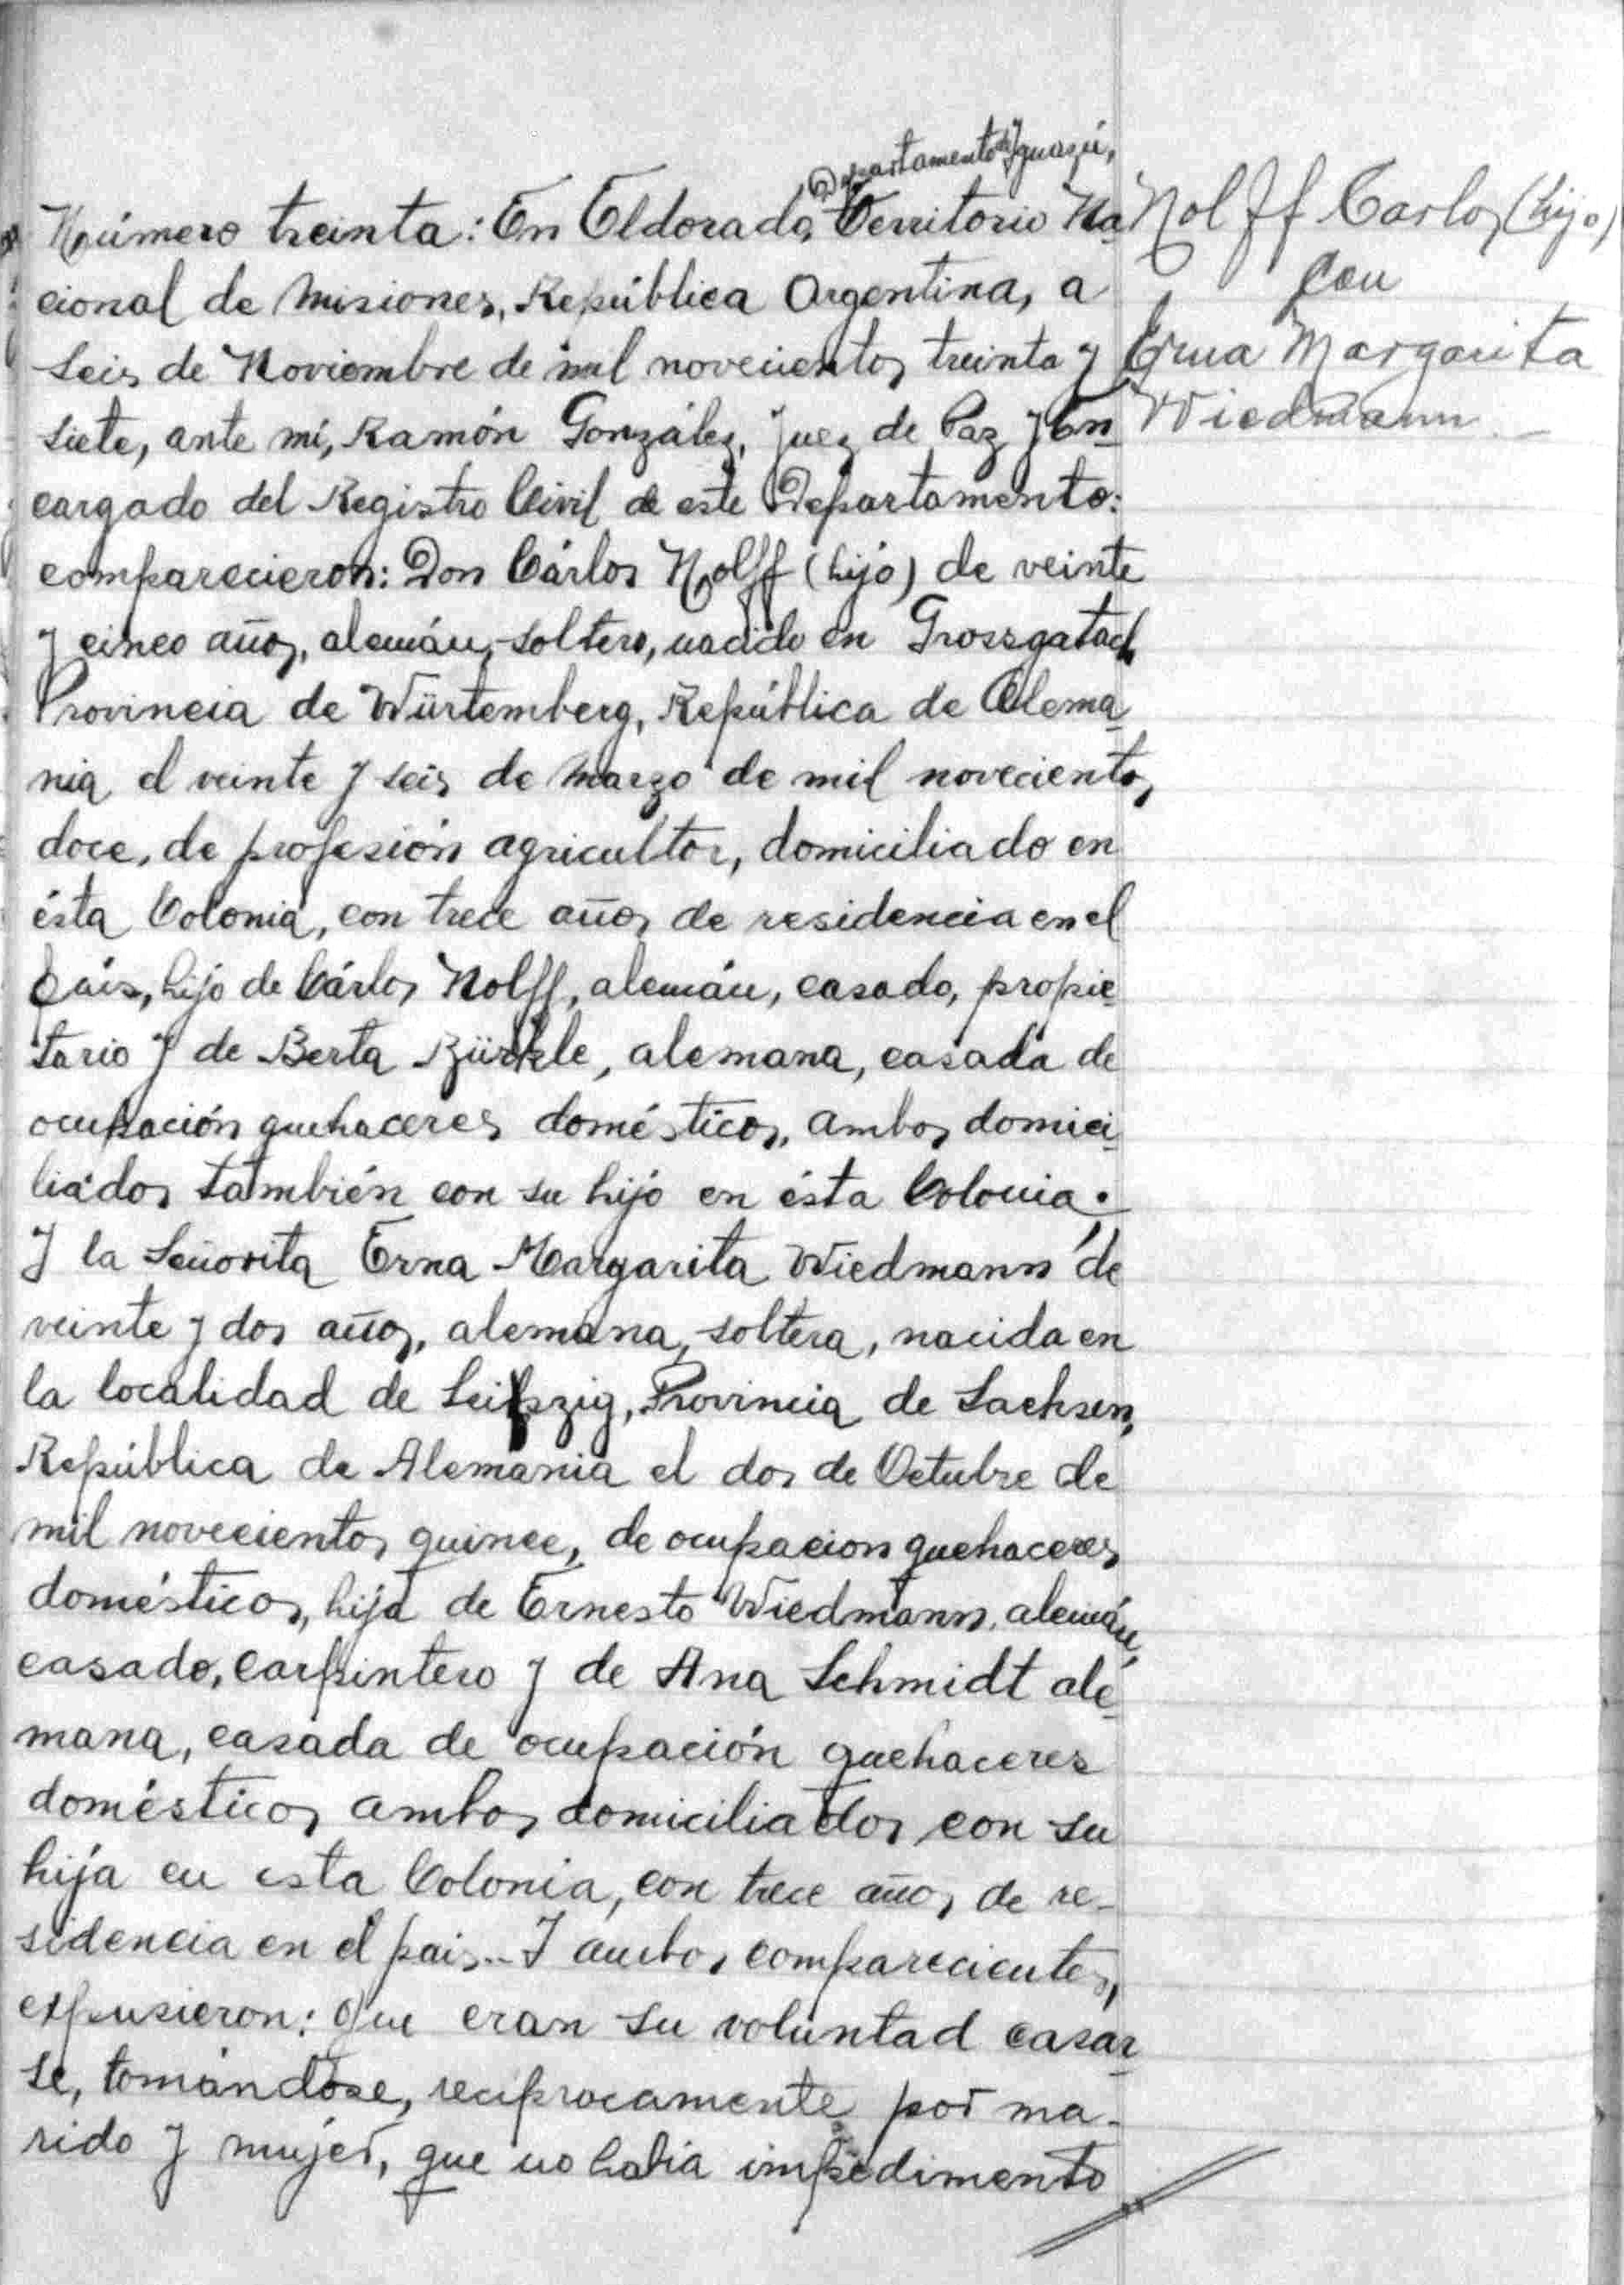 Departamento de Yguazú,
Número treinta: En Eldorado, Territorio Na-
cional de Misiones, República Argentina, a
seis de Noviembre de mil novecientos treinta y
siete, ante mí, Ramón González, Juez de Paz y En-
cargado del Registro Civil de este Departamento:
comparecieron: Don Cárlos Nolff (hijo) de veinte
y cinco años, alemán, soltero, nacido en Grossgatach
Provincia de Würtemberg, República de Alema-
nia el veinte y seis de Marzo de mil novecientos
doce, de profesión agricultor, domiciliado en
ésta Colonia, con trece años de residencia en el
País, hijo de Cárlos Nolff, alemán, casado, propie-
tario y de Berta, alemana, casada de
ocupación quehaceres domésticos, ambos domici-
liados también con su hijo en ésta Colonia;
Y la Señorita Erna Margarita Wiedmann de
veinte y dos años, alemana, soltera, nacida en
la localidad de Leipzig, Provincia de Sachsen,
República de Alemania el dos de Octubre de
mil novecientos quince, de ocupacion quehaceres
domésticos, hija de Ernesto Wiedmann, alemán,
casado, carpintero y de Ana Schmidt ale-
mana, casada de ocupación quehaceres
domésticos ambos domiciliados con su
hija en esta Colonia, con trece años de re-
sidencia en el pais.. Y ambos comparecientes,
expusieron: Que eran su voluntad casar-
se, tomándose, reciprocamente por ma-
rido y mujer, que no habia impedimento
Nolff Carlos (hijo)
con
Erna Margarita
Wiedmann